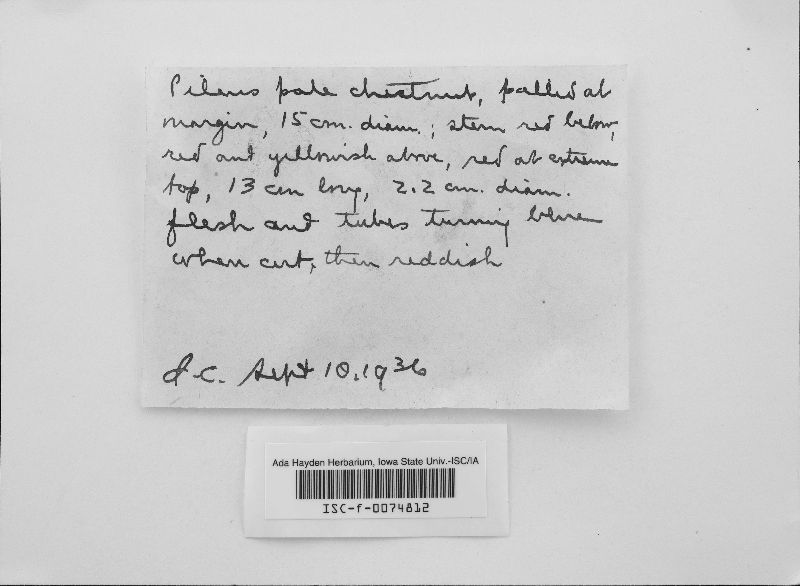 Pileus pale chestnut, pallid at
margin, 15 cm. diam.; stem red below,
red and yellowish above, red at extreme
top, 13 cm long, 2.2 cm. diam.
flesh and tubes turning blue
when cut, then reddish
I.C. Sept 10, 1936
Ada Hayden Herbarium, Iowa State Univ.-ISC/IA
ISC-f-0074812